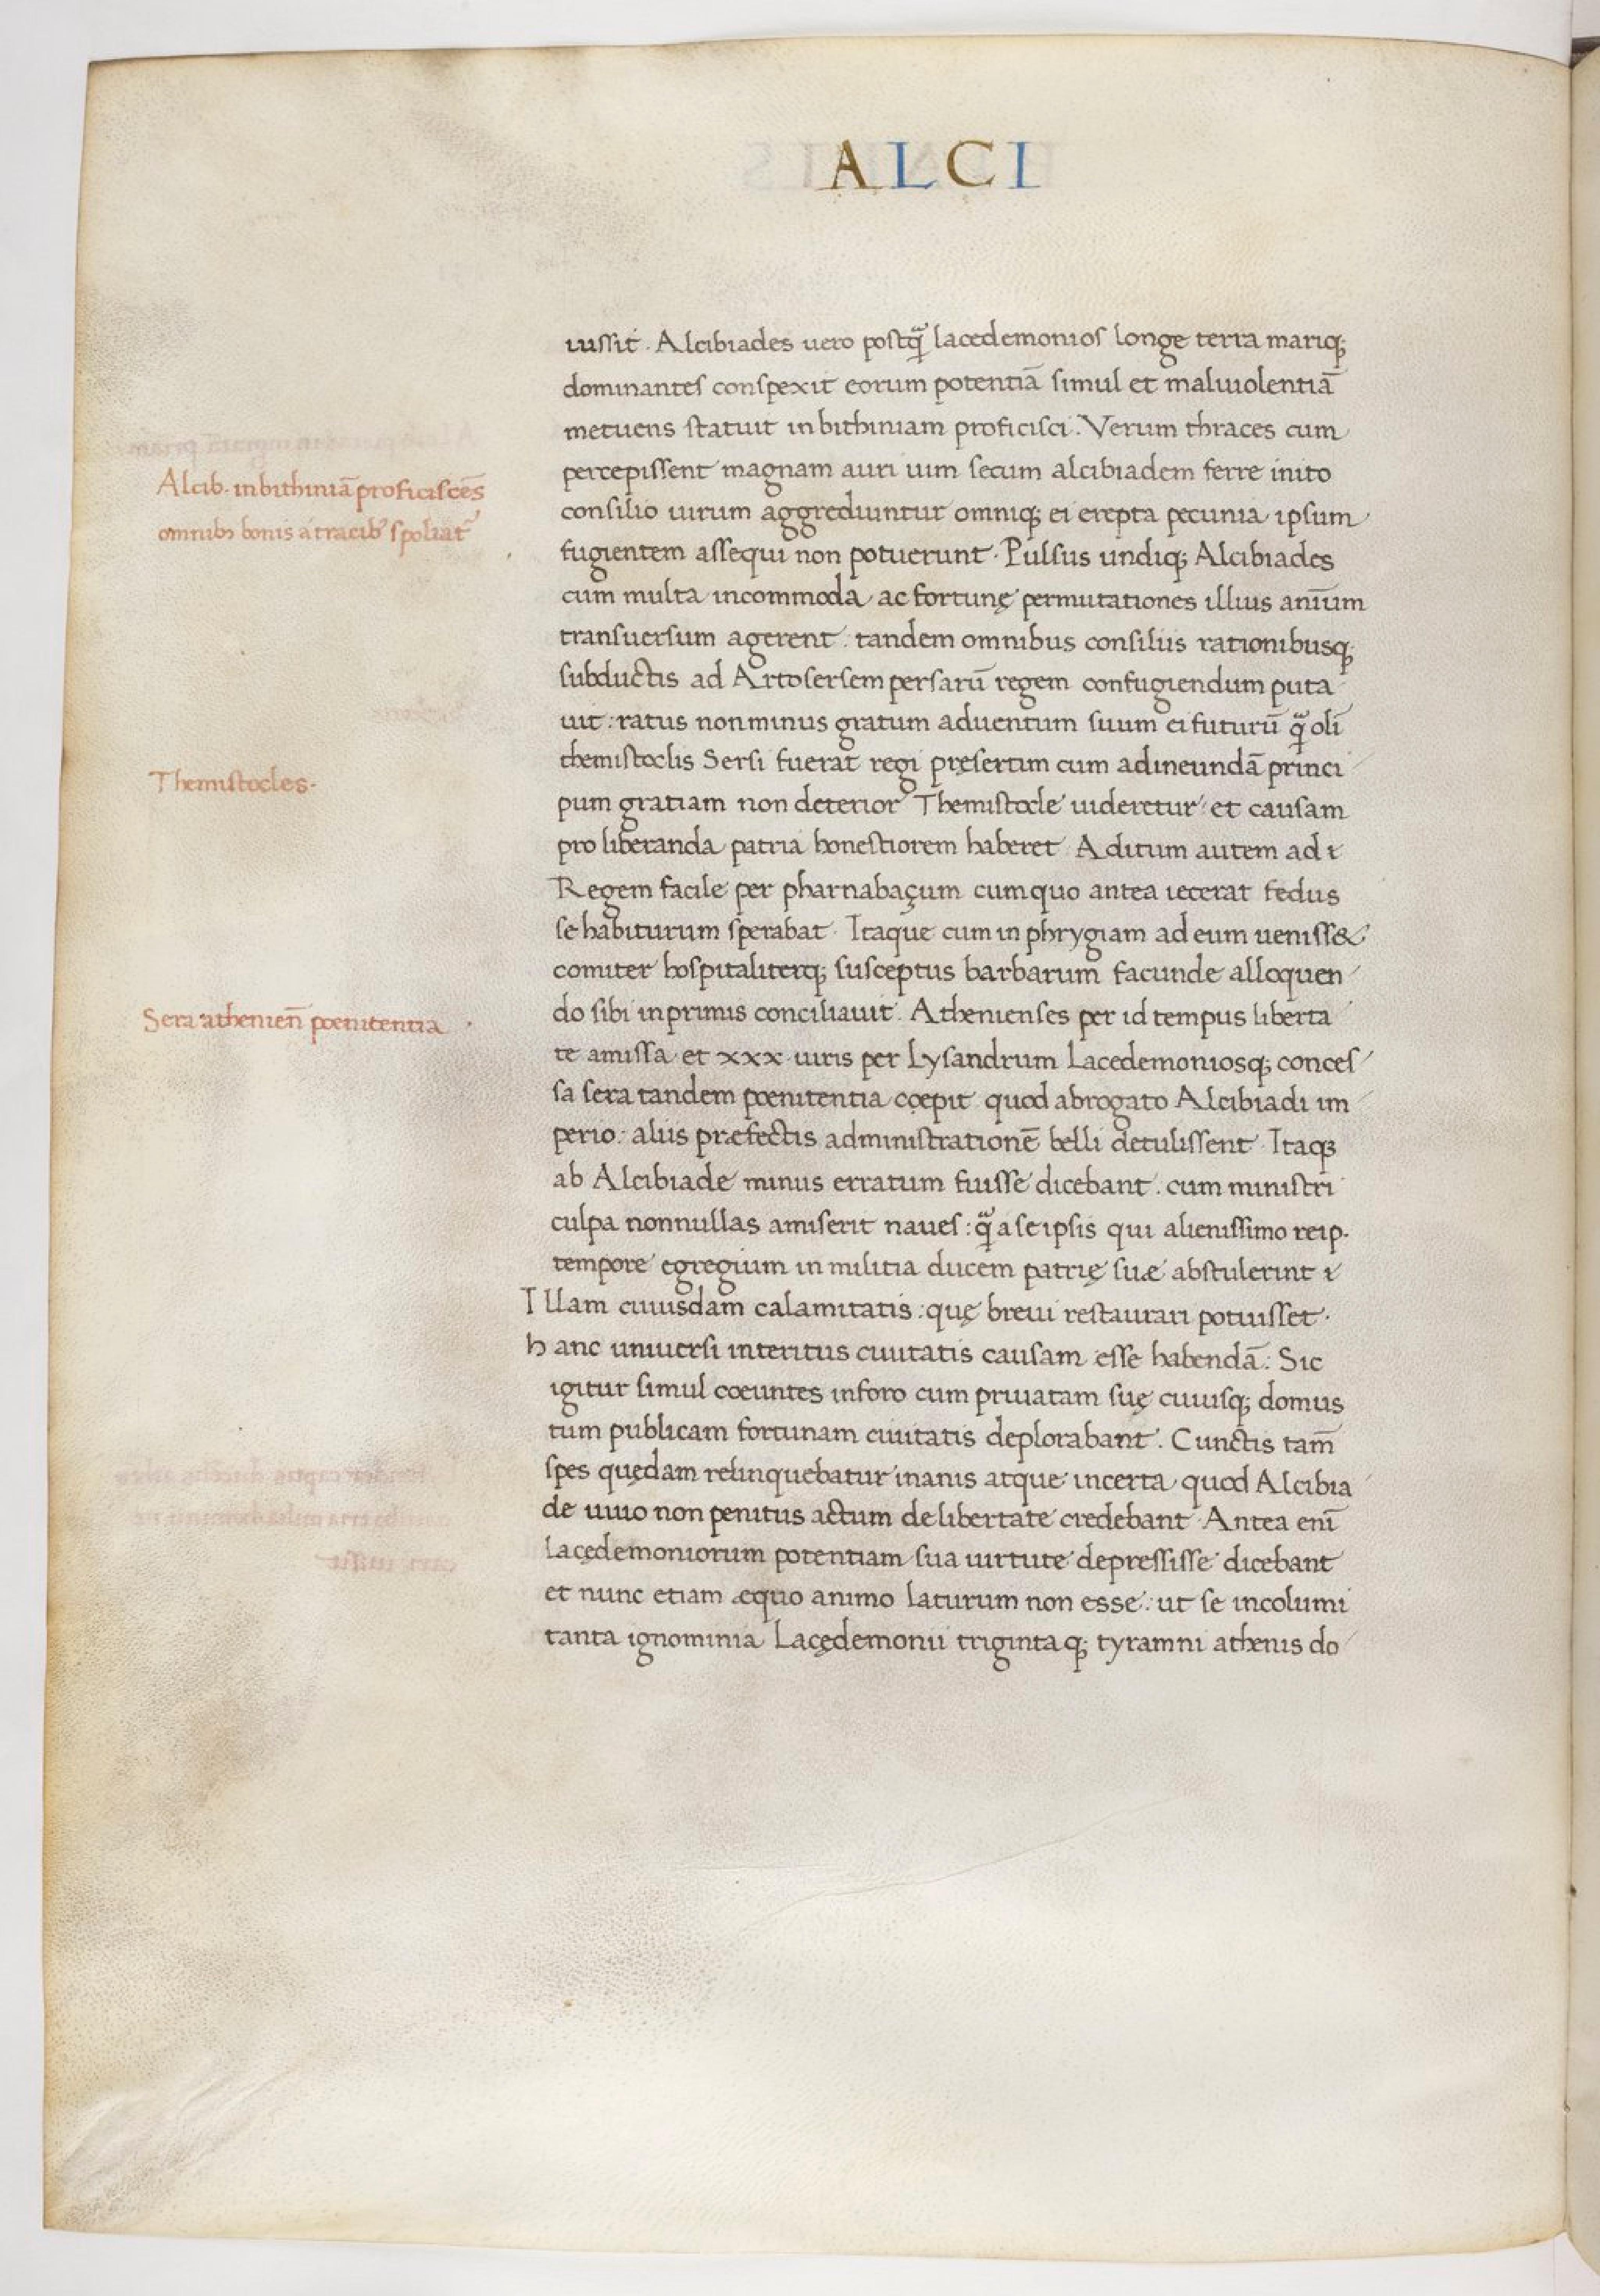 ALCI
iussit. Alcibiades uero postq̃ lacedemonios longe terra mariq;
dominantes conspexit eorum potentiā simul et maliuolentiā
metuens statuit in bithiniam proficisci. Verum thraces cum
percepissent magnam auri uim secum alcibiadem ferre inito
Alcib. in bithiniā proficiscēs
consilio uirum aggrediuntur omniq; ei erepta pecunia ipsum
omnib; bonis a tracib' spoliat^r
fugientem assequi non potuerunt. Pulsus undiq; Alcibiades
cum multa incommoda ac fortunę permutationes illius anīum
transuersum agerent: tandem omnibus consiliis rationibusq;
subductis ad Artosersem persarū regem confugiendum puta
uit: ratus non minus gratum aduentum suum ei futurū q̃ olī
themistoclis Sersi fuerat regi pręsertim cum ad ineundā princi
Themistocles.
pum gratiam non deterior Themistocle uideretur: et causam
pro liberanda patria honestiorem haberet. Aditum autem ad i
Regem facile per pharnabaçum cum quo antea iecerat fedus
se habiturum sperabat. Itaque cum in phrygiam ad eum ueniss&
comiter hospitaliterq; susceptus barbarum facunde alloquen
do sibi in primis conciliauit. Athenienses per id tempus liberta
Sera athenien̄ poenitentia
te amissa et xxx uiris per Lysandrum Lacedemoniosq; conces
sa sera tandem poenitentia coepit quod abrogato Alcibiadi im
perio: aliis præfectis administrationē belli detulissent. Itaq;
ab Alcibiade minus erratum fuisse dicebant. cum ministri
culpa nonnullas amiserit naues: q̃ a se ipsis qui alienissimo reip.
tempore egregium in militia ducem patrię suæ abstulerint i
Illam cuiusdam calamitatis: quę breui restaurari potuisset.
hanc uniuersi interitus ciuitatis causam esse habendā: Sic
igitur simul coeuntes in foro cum priuatam suę cuiusq; domus
tum publicam fortunam ciuitatis deplorabant. Cunctis tam̄
spes quędam relinquebatur inanis atque incerta quod Alcibia
de uiuo non penitus actum de libertate credebant. Antea enī
lacędemoniorum potentiam sua uirtute depressisse dicebant
et nunc etiam æquo animo laturum non esse: ut se incolumi
tanta ignominia Lacędemonii triginta q; tyramni athenis do